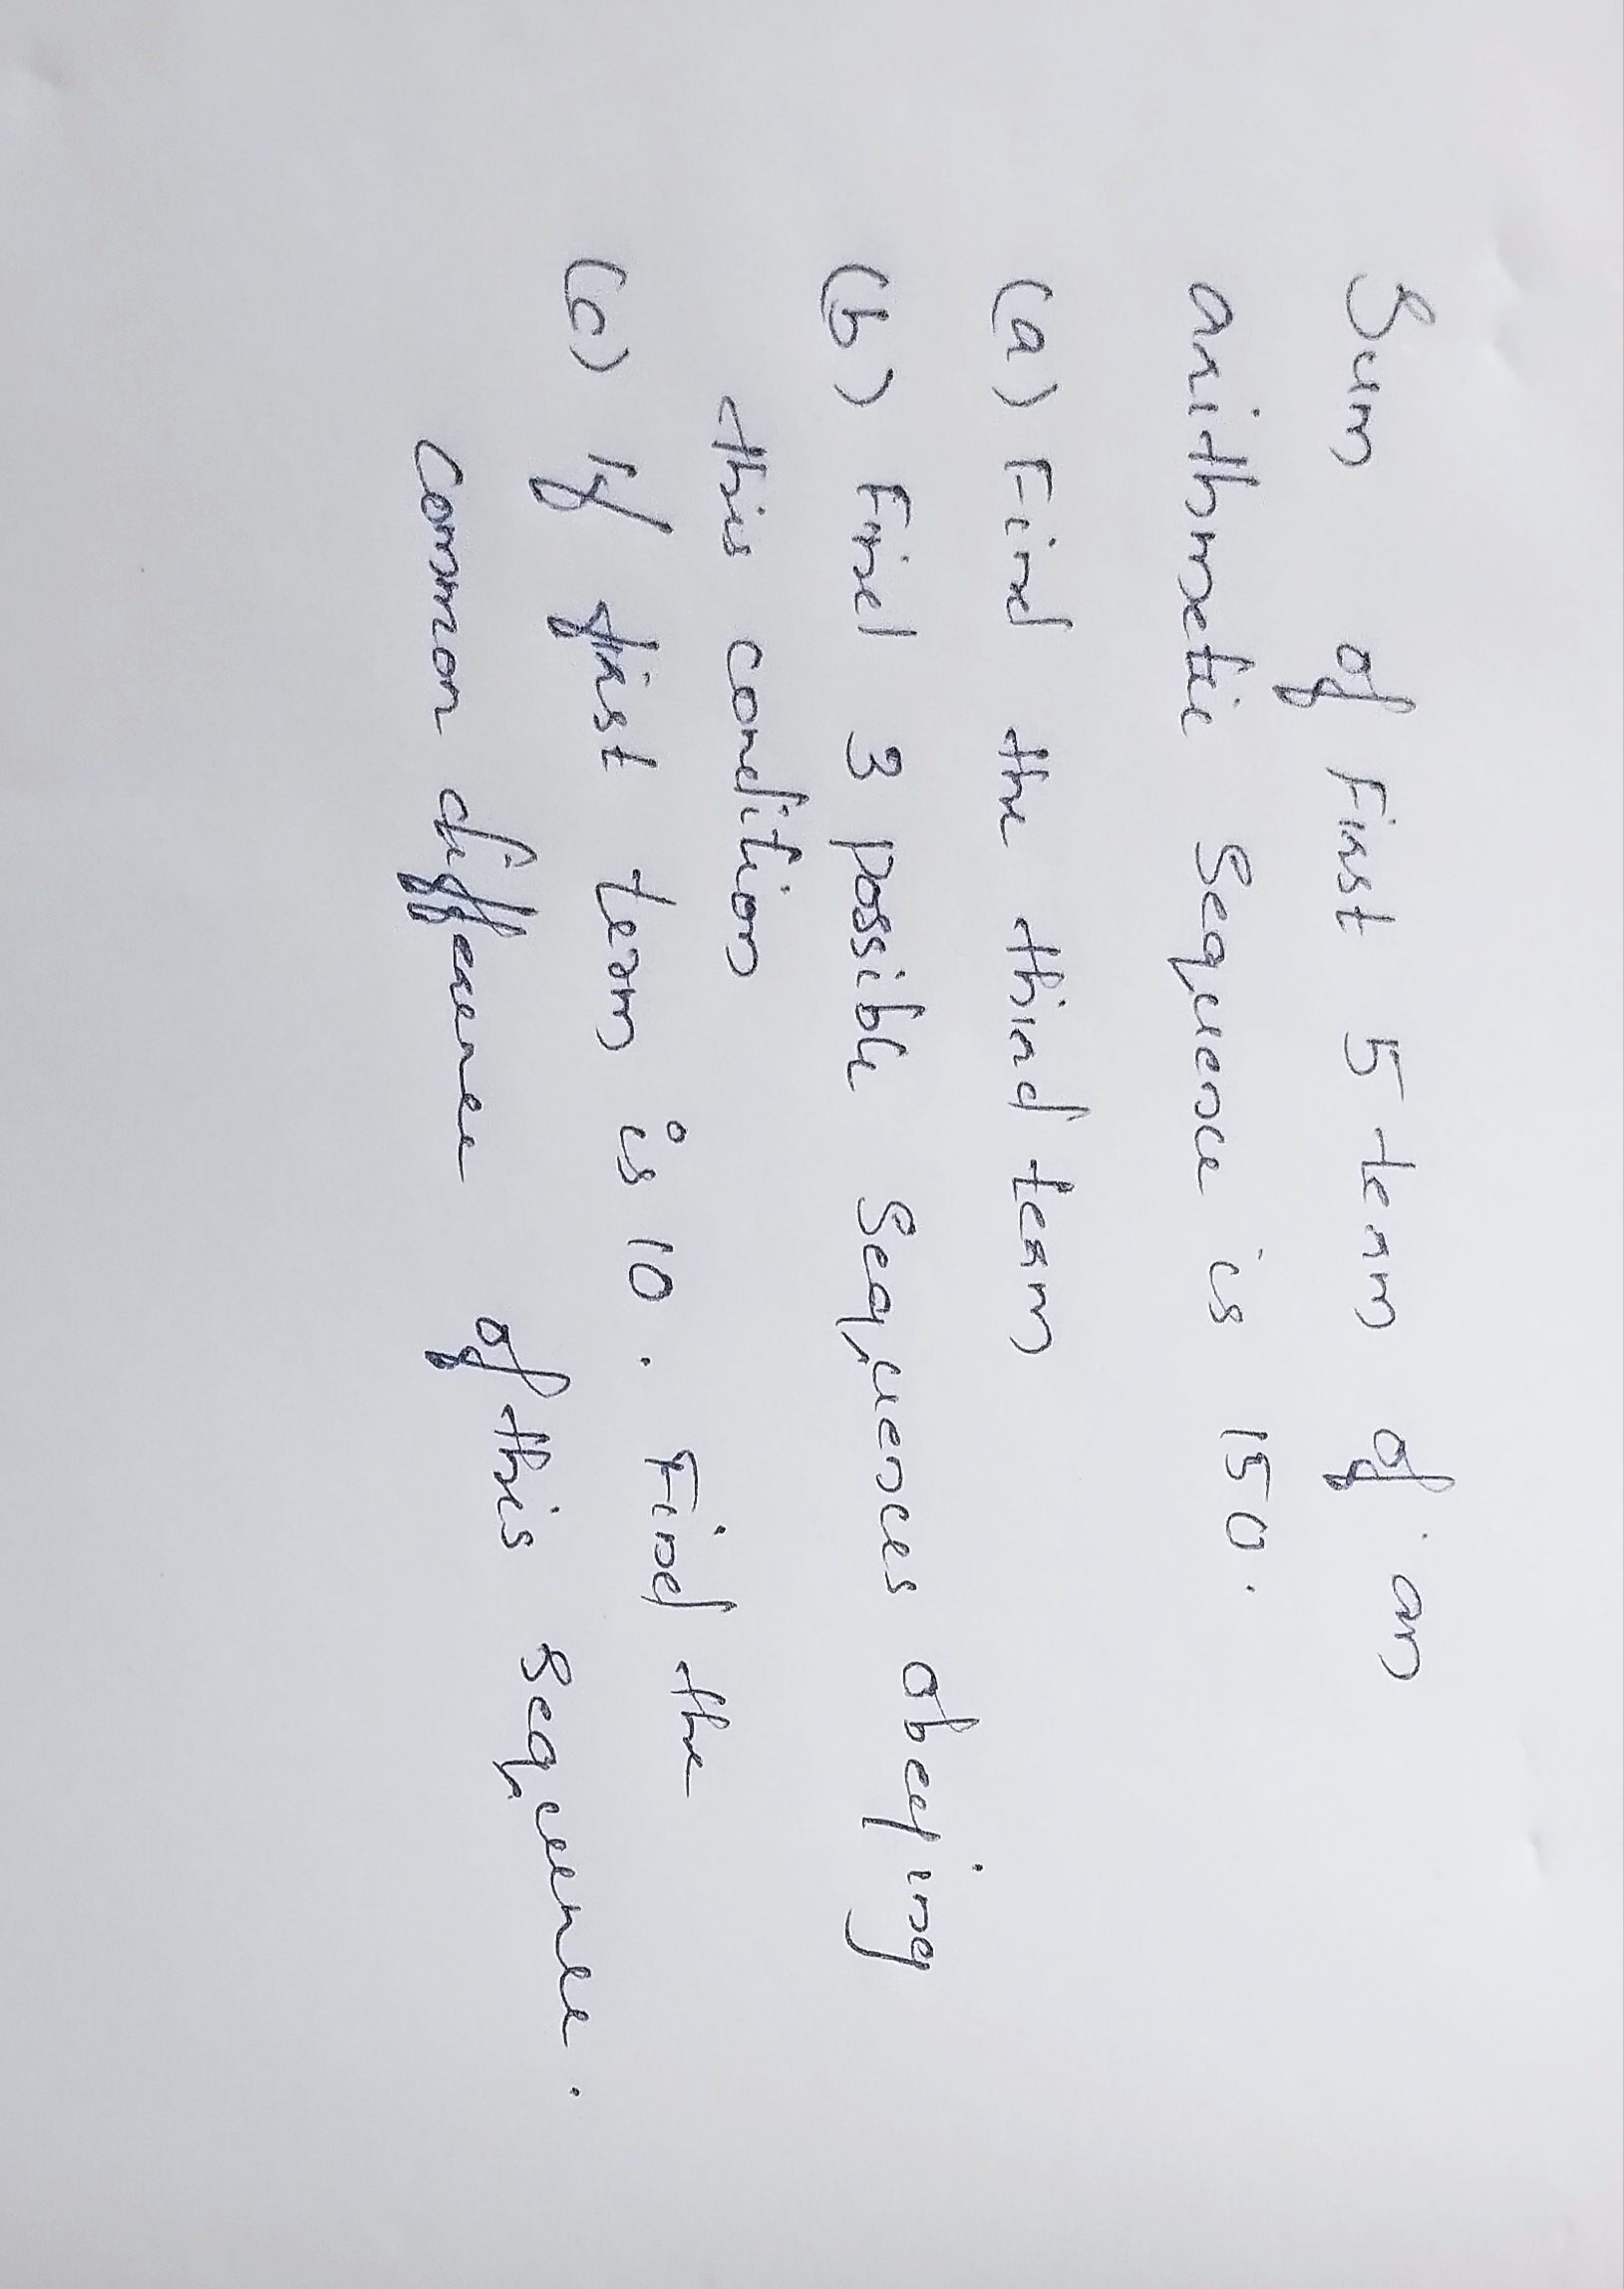 Sum of First 5 term of an
arithmetic sequence is 150.
(a) Find the third term
(b) Find 3 possible sequences obeying
this condition
(c) If first term is 10. Find the
common difference of this sequence.